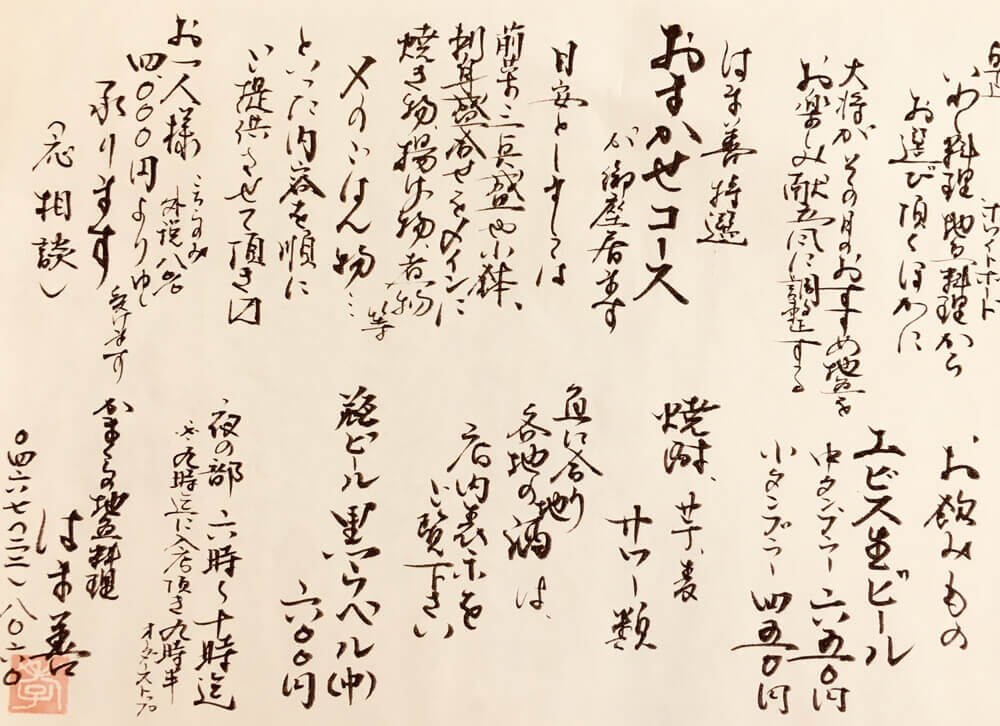 ホワイトボード
いわし料理、地魚料理から
お選び頂くほかに
大将がその日のおすすめ地魚を
お楽しみ献立風に調整する
はま善特選
おまかせコース
が御座居ます
目安としましては
前菜三点盛や小鉢、
刺身盛合せをメインに
焼き物、揚げ物、煮物
等
〆のごはん物…
といった内容を順に
ご提供させて頂き
お一人様
四、〇〇〇円より
承ります
(応相談)
お飲みもの
ヱビス生ビール
中タンブラー 六五〇円
小タンブラー 四五〇円
焼酎、芋、麦
サワー類
魚に合う
各地の地酒は、
店内表示を
ご覧下さい
瓶ビール黒ラベル(中)
六〇〇円
夜の部 六時〜十時迄
九時迄に入店頂き九時半
オーダーストップ
かまくら地魚料理
はま善
〇四六七(二三)八〇二〇